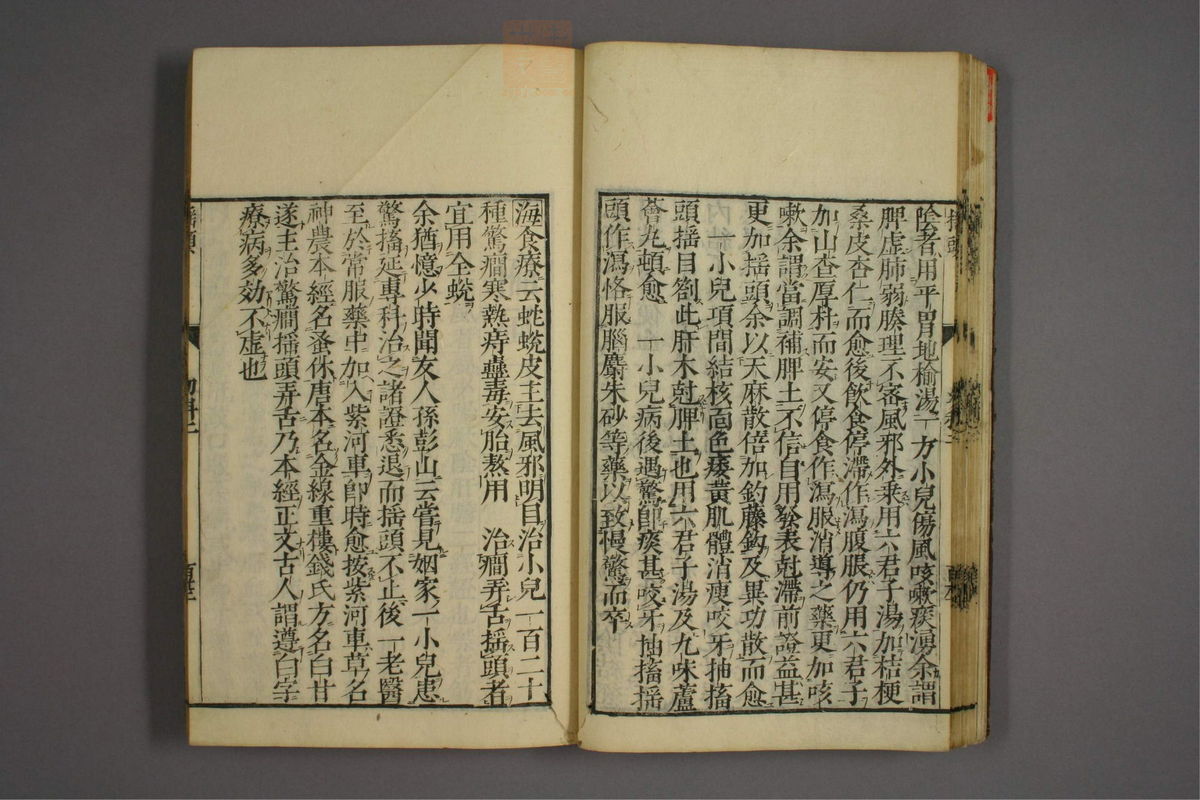 陰者用平胃地榆湯一方小兒傷風咳嗽痰湧余謂
脾虛肺弱腠理不密風邪外乗用六君子湯加桔梗
桑皮杏仁而愈後飲食停滯作瀉腹脹仍用六君子
加山查厚朴而安又停食作瀉服消導之藥更加咳
嗽余謂當調補脾土不信自用發表尅滯前證益甚
更加揺頭余以天麻散倍加釣藤鈎及異功散而愈
一小兒項間結核面色痿黄肌體消瘦咬牙抽搐
頭揺目劄此肝木尅脾土也用六君子湯及九味蘆
薈丸頓愈 一小兒病後遇驚即痰甚咬牙抽搐揺
頭作瀉恪服腦麝朱砂等藥以致慢驚而卒
海食療云蛇蛻皮主去風邪明目治小兒一百二十
種驚癎寒熱痔蠱毒安胎熬用 治癎弄舌揺頭者
宜用全蛻
余猶憶少時聞友人孫彭山云嘗見姻家一小兒患
驚揺延專科治之諸證悉退而揺頭不止後一老醫
至於常服藥中加入紫河車即時愈按紫河車草名
神農本經名蚤休唐本名金線重樓錢氏方名白甘
遂主治驚癎揺頭弄舌乃本經正文古人謂遵白字
療病多効不虚也